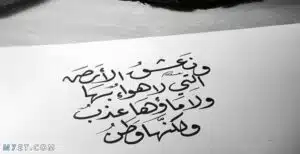 ونعشق الأرض
التي لا هواء بها
ولا ماؤها عذب
ولكنها وطن
MYST.COM